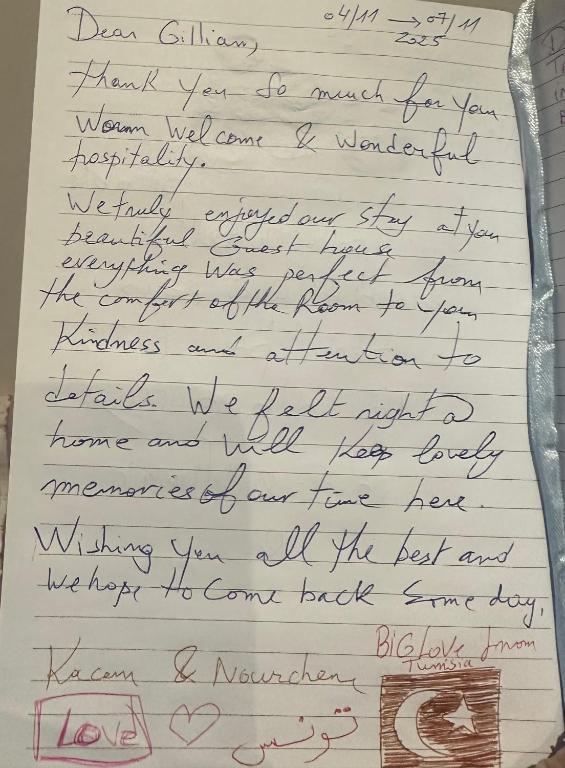 04/11 → 07/11
2025
Dear Gillian,
thank you so much for your
Warm Welcome & Wonderful
hospitality.
We truly enjoyed our stay at your
beautiful Guest house
everything Was perfect from
the comfort of the Room to your
Kindness and attention to
details. We felt right @
home and will Keep lovely
memories of our time here.
Wishing you all the best and
We hope to Come back Some day,
BiG Love from
Tunisia
Kacem & Nourchene
Love
تونس